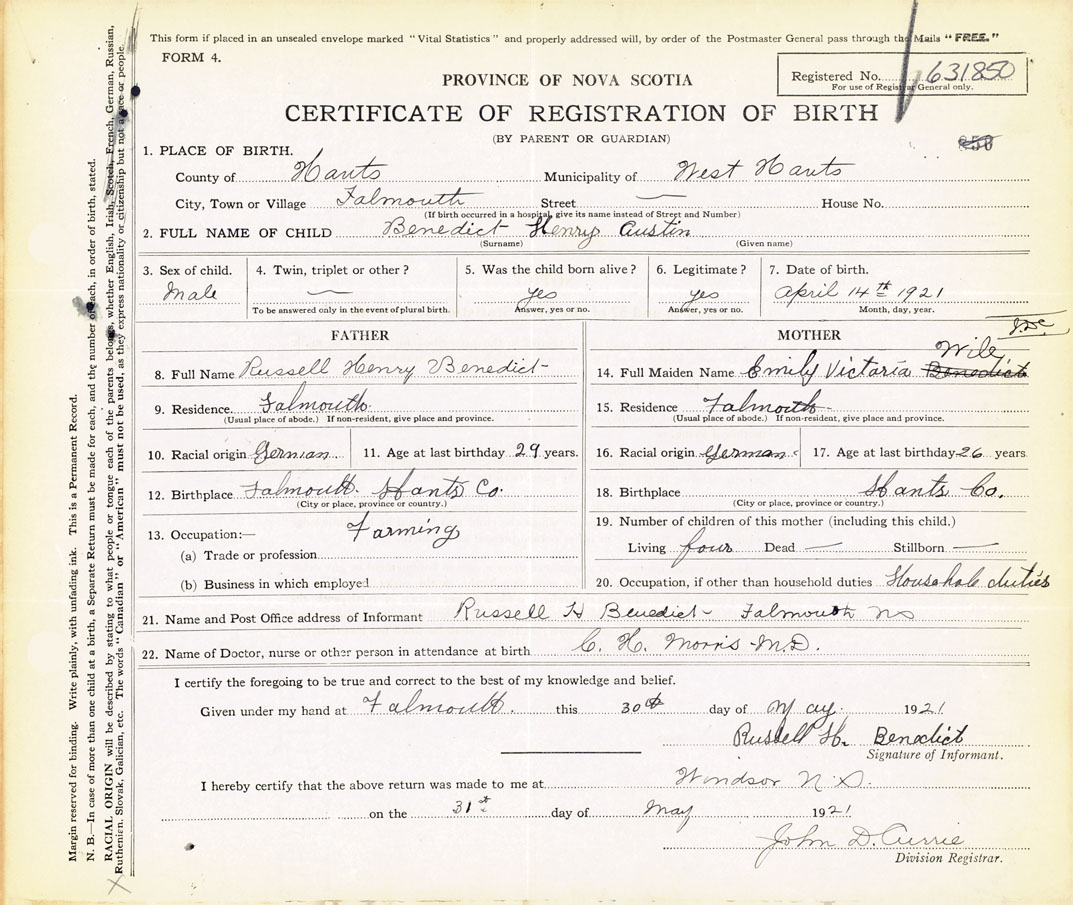 This form if placed in an unsealed envelope marked "Vital Statistics" and properly addressed will, by order of the Postmaster General pass through the Mails "FREE."
FORM 4.
PROVINCE OF NOVA SCOTIA
Registered No. 631850
For use of Registrar General only.
CERTIFICATE OF REGISTRATION OF BIRTH
(BY PARENT OR GUARDIAN)
850
1. PLACE OF BIRTH.
County of Hants Municipality of West Hants
City, Town or Village Falmouth Street — House No.
(If birth occurred in a hospital, give its name instead of Street and Number)
2. FULL NAME OF CHILD Benedict Henry Austin
(Surname) (Given name)
3. Sex of child. 4. Twin, triplet or other? 5. Was the child born alive? 6. Legitimate? 7. Date of birth.
Male — yes yes April 14th 1921
To be answered only in the event of plural birth. Answer, yes or no. Answer, yes or no. Month, day, year.
FATHER
8. Full Name Russell Henry Benedict
9. Residence. Falmouth
(Usual place of abode.) If non-resident, give place and province.
10. Racial origin German 11. Age at last birthday 29 years.
12. Birthplace Falmouth Hants Co.
(City or place, province or country.)
13. Occupation:— Farming
(a) Trade or profession
(b) Business in which employed
MOTHER
J.D.C.
Wile
14. Full Maiden Name Emily Victoria Benedict
15. Residence Falmouth
(Usual place of abode.) If non-resident, give place and province.
16. Racial origin German 17. Age at last birthday 26 years
18. Birthplace Hants Co.
(City or place, province or country.)
19. Number of children of this mother (including this child.)
Living four Dead — Stillborn —
20. Occupation, if other than household duties Househole duties
21. Name and Post Office address of Informant Russell H Benedict Falmouth NS
22. Name of Doctor, nurse or other person in attendance at birth C. H. Morris M.D.
I certify the foregoing to be true and correct to the best of my knowledge and belief.
Given under my hand at Falmouth. this 30th day of May 1921
Russell H. Benedict
Signature of Informant.
I hereby certify that the above return was made to me at Windsor N.S.
on the 31st day of May 1921
John D. Currie
Division Registrar.
Margin reserved for binding. Write plainly, with unfading ink. This is a Permanent Record.
N. B.—In case of more than one child at a birth, a Separate Return must be made for each, and the number of each, in order of birth, stated.
RACIAL ORIGIN will be described by stating to what people or tongue each of the parents belongs, whether English, Irish, Scotch, French, German, Russian,
Ruthenian, Slovak, Galician, etc. The words "Canadian" or "American" must not be used, as they express nationality or citizenship but not a race or people.